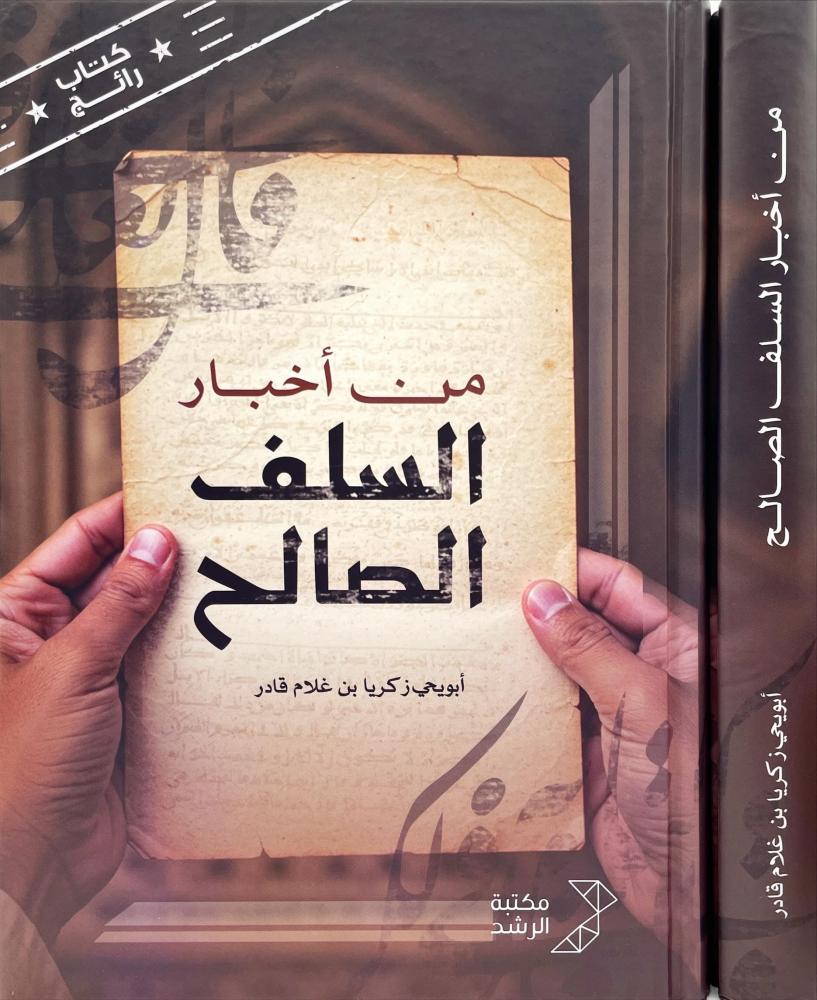 كتاب
رائج
من أخبار
السلف
الصالح
أبويحي زكريا بن غلام قادر
مكتبة
الرشد
من أخبار السلف الصالح
أبويحي زكريا بن غلام قادر